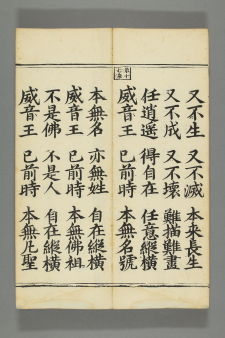 又不生 又不滅 本來長生
又不成 又不壞 難描難畫
任逍遥 得自在 任意縱橫
威音王 已前時 本無名號
本無名 亦無姓 自在縱橫
威音王 已前時 本無佛祖
不是佛 不是人 自在縱橫
威音王 已前時 本無凡聖